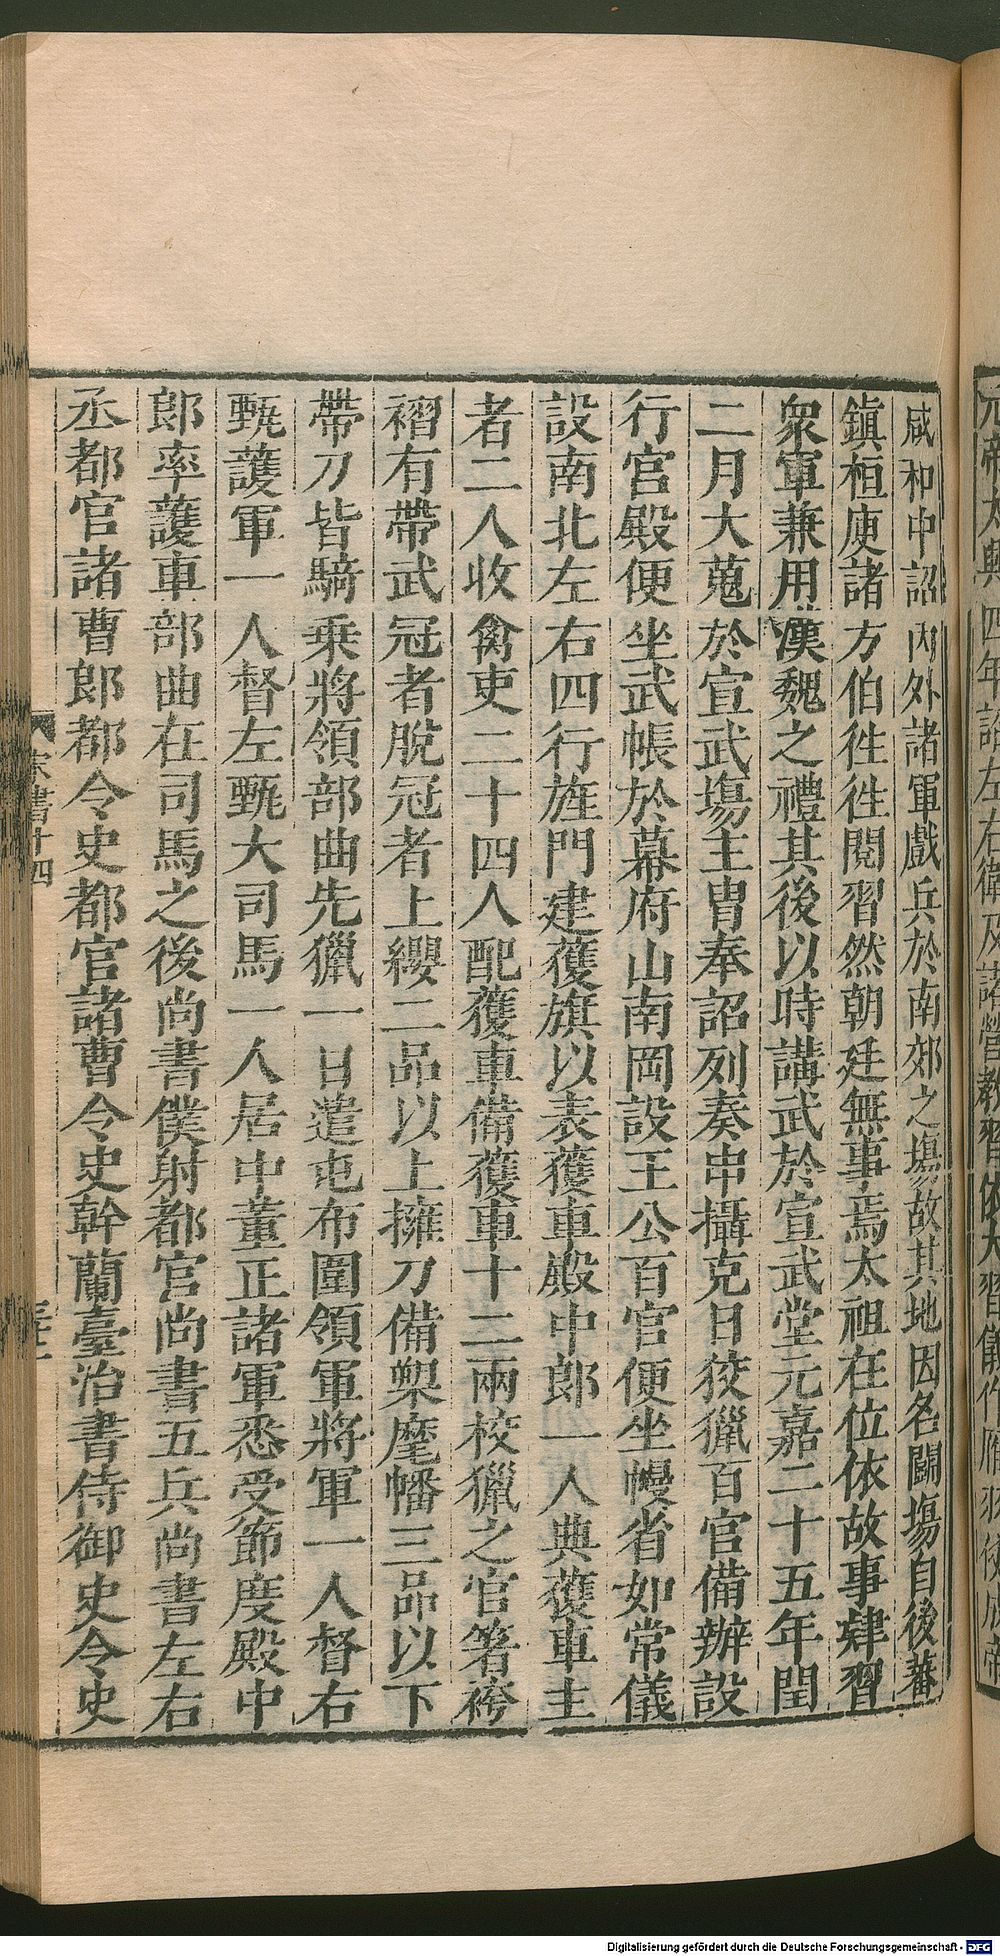 元帝太興四年詔左右衛及諸營教習依大習儀作雁羽仗成帝
咸和中詔內外諸軍戲兵於南郊之場故其地因名鬬場自後蕃
鎮桓庾諸方伯徃徃閱習然朝廷無事焉太祖在位依故事肄習
衆軍兼用漢魏之禮其後以時講武於宣武堂元嘉二十五年閏
二月大蒐於宣武塲主胄奉詔列奏申攝克日狡獵百官備辦設
行宮殿便坐武帳於幕府山南岡設王公百官便坐幔省如常儀
設南北左右四行旌門建獲旗以表獲車殿中郎一人典獲車主
者二人收禽吏二十四人配獲車備獲車十二兩校獵之官箸袴
褶有帶武冠者脫冠者上纓二品以上擁刀備槊麾幡三品以下
帶刀皆騎乗將領部曲先獵一日遣屯布圍領軍將軍一人督右
甄護軍一人督左甄大司馬一人居中董正諸軍悉受節度殿中
郎率護車部曲在司馬之後尚書僕射都官尚書五兵尚書左右
丞都官諸曹郎都令史都官諸曹令史幹蘭臺治書侍御史令史
宋書十四
Digitalisierung gefördert durch die Deutsche Forschungsgemeinschaft - DFG